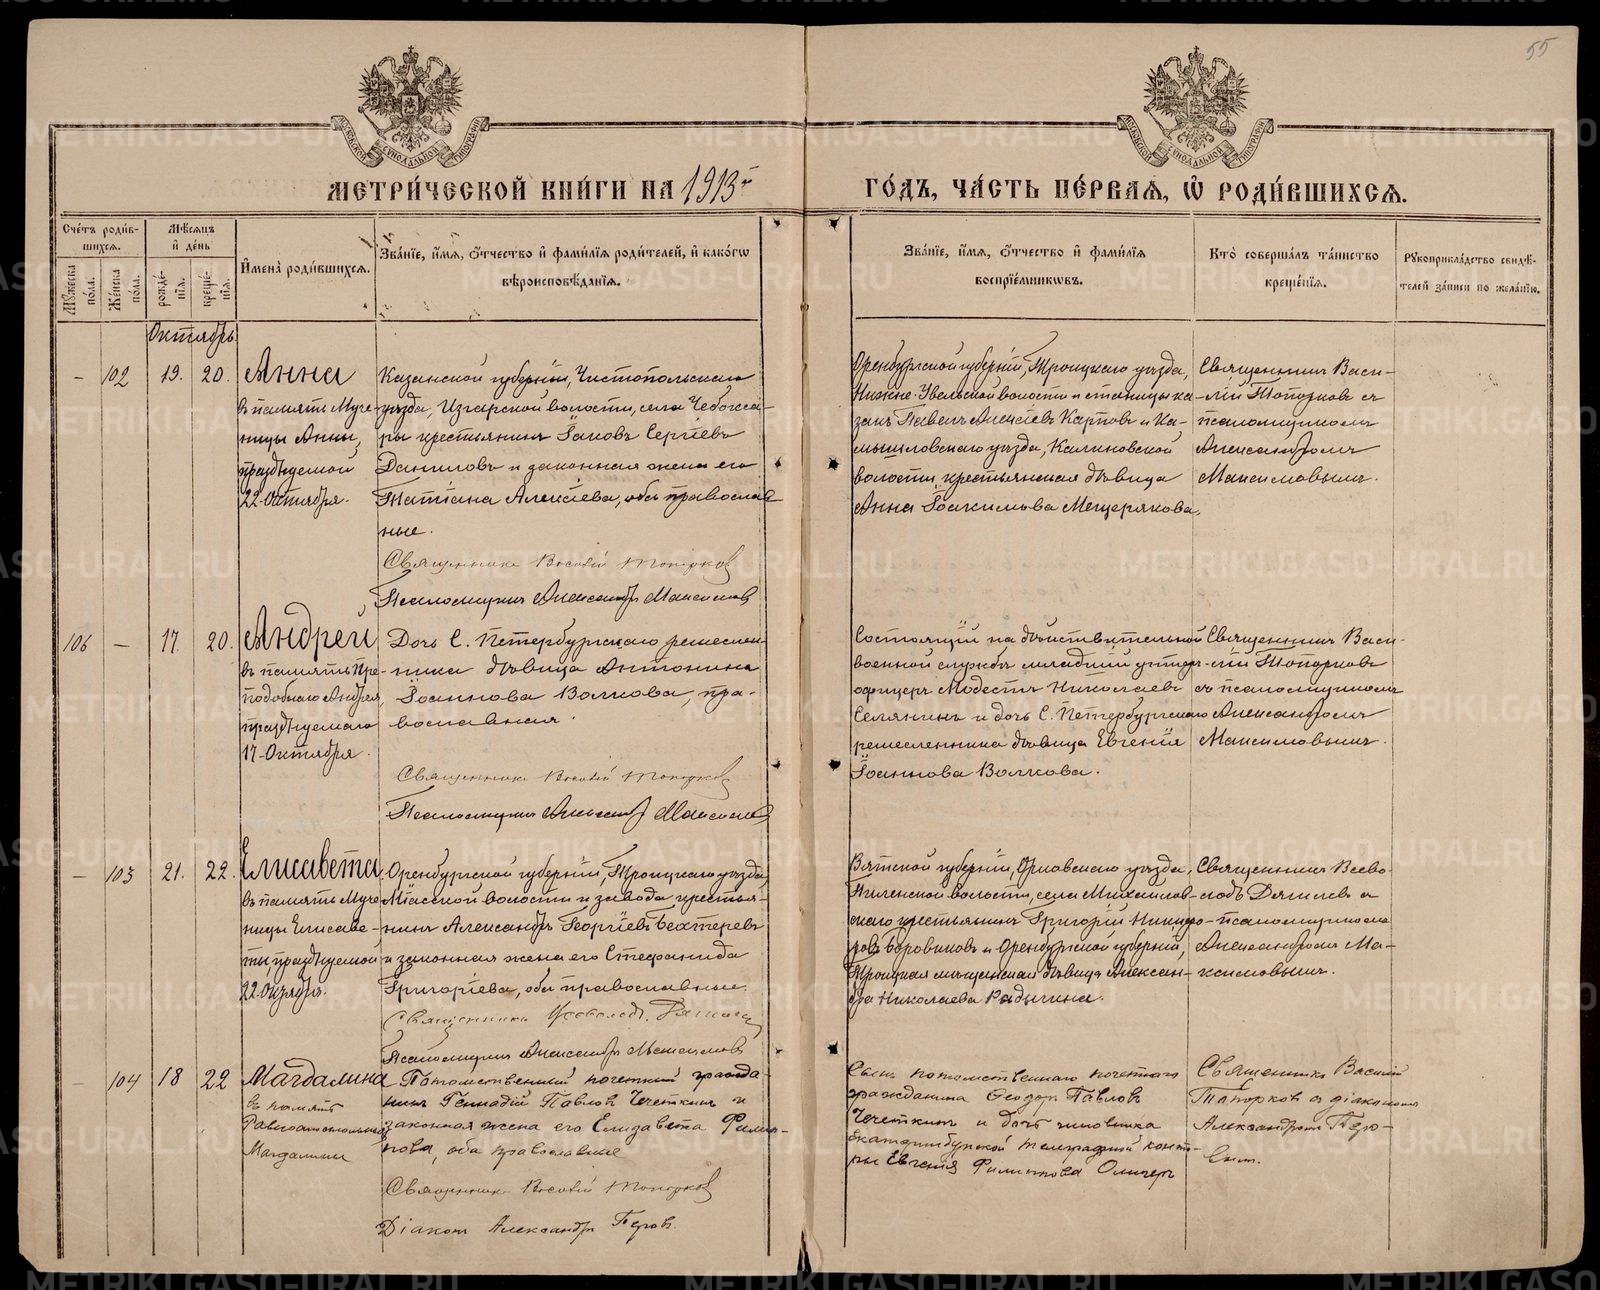 55
МЕТРИ́ЧЕСКОЙ КНИ́ГИ НА 1913 й
ГО́ДЪ, ЧА́СТЬ ПЕ́РВАѦ, Ѡ҆ РОДИ́ВШИХСѦ.
Сче́тъ роди́в-
шихсѧ.
Мѣ́сѧцъ
и҆ де́нь
Мꙋ́жеска
по́ла.
Же́нска
по́ла.
рожде́-
нїѧ.
креще́-
нїѧ.
И҆мена̀ роди́вшихсѧ.
Зва́нїе, и҆́мѧ, ѻ҆́тчество и҆ фами́лїѧ роди́телей, и҆ како́гѡ
вѣроисповѣ́данїѧ.
Зва́нїе, и҆́мѧ, ѻ҆́тчество и҆ фами́лїѧ
воспрїе́мникѡвъ.
Кто̀ соверша́лъ та́инство
креще́нїѧ.
Рꙋкоприкла́дство свидѣ́-
телей за́писи по жела́нїю.
Октябрь
- 102 19. 20.
Анна
въ память Муче-
ницы Анны,
празднуемой
22-Октября.
Казанской губернiи, Чистопольскаго
уѣзда, Изгарской волости, села Чебокса-
ры крестьянинъ Iаковъ Сергѣевъ
Даниловъ и законная жена его
Татiана Алексѣева, оба православ
ные.
Священникъ Василiй Топорковъ
Псаломщикъ Александръ Максимовъ
Оренбургской губернiи, Троицкаго уѣзда,
Нижне-Увельской волости и станицы ка-
закъ Павелъ Алексѣевъ Карповъ и Ка-
мышловскаго уѣзда, Калиновской
волости, крестьянская дѣвица
Анна Iоакимова Мещерякова,
Священникъ Васи-
лiй Топорковъ съ
псаломщикомъ
Александромъ
Максимовымъ.
106 - 17. 20.
Андрей
въ память Пре-
подобнаго Андрея,
празднуемаго
17-Октября.
Дочь С. Петербургскаго ремеслен-
ника дѣвица Антонина
Iоаннова Волкова, пра-
вославная.
Священникъ Василiй Топорковъ
Псаломщикъ Александръ Максимовъ
Состоящiй на дѣйствительной
военной службѣ младшiй унтеръ-
офицеръ Модестъ Николаевъ
Селянинъ и дочь С. Петербургскаго
ремесленника дѣвица Евгенiя
Iоаннова Волкова.
Священникъ Васи-
лiй Топорковъ
съ псаломщикомъ
Александромъ
Максимовымъ.
- 103 21. 22.
Елисавета
въ память Муче
ницы Елисаве-
ты, празднуемой
22-Октября.
Оренбургской губернiи, Троицкаго уѣзда,
Мiасской волости и завода крестья-
нинъ Александръ Георгiевъ Бехтеревъ
и законная жена его Стефанида
Григорiева, оба православные.
Священникъ Всеволодъ Дягилевъ
Псаломщикъ Александръ Максимовъ
Вятской губернiи, Орловскаго уѣзда,
волости, села Михайлов-
скаго крестьянинъ Григорiй Никифо-
ровъ Боровиковъ и Оренбургской губернiи,
Троицкая мѣщанская дѣвица Алексан-
дра Николаева Радыгина.
Священникъ Всево-
лодъ Дягилевъ съ
псаломщикомъ
Александромъ Ма-
ксимовымъ.
- 104 18 22
Магдалина
въ память
Равноапостольной
Магдалины
Потомственный почетный гражда-
нинъ Геннадiй Павловъ Чечеткинъ и
законная жена его Елизавета Филип-
пова, оба православные
Священникъ Василiй Топорковъ
Дiаконъ Александръ Перовъ.
Сынъ потомственнаго почетнаго
гражданина Феодоръ Павловъ
Чечеткинъ и дочь чиновника
Екатеринбургской телеграфной конто-
ры Евгенiя Филиппова
Священникъ Василiй
Топорковъ съ дiакономъ
Александромъ Перо-
вым.
METRIKI.GASO-URAL.RU